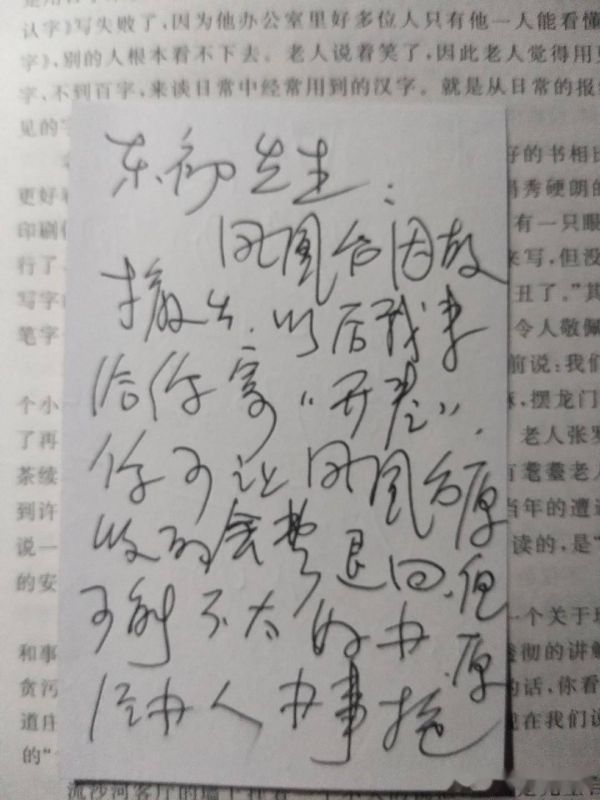 认字》写失败了，因为他办公室里好多位人只有他一人能看懂
字》，别的人根本看不下去。老人说着笑了，因此老人觉得用
字、不到百字，来谈日常中经常用到的汉字。就是从日常的报
见的
东初先生：
凤凰台因故
撤出，以后我来
给你寄“开卷”，
你可让凤凰台原
收的会费退回，但
可能不太好办，原
经办人办事拖
好的书相比
更好 秀硬朗的
印刷 有一只眼
行了、 来写，但没
写字 丑了。”其
笔字 令人敬佩
前说：我们
个小 摆龙门
了再 老人张罗
茶续 有耄耋老人
到许 当年的遭
说一 读的，是“
的安
一个关于
和事 彻的讲解
贪污 的话，你看
道庄 在我们说
的“
流沙河客厅的墙上挂着一